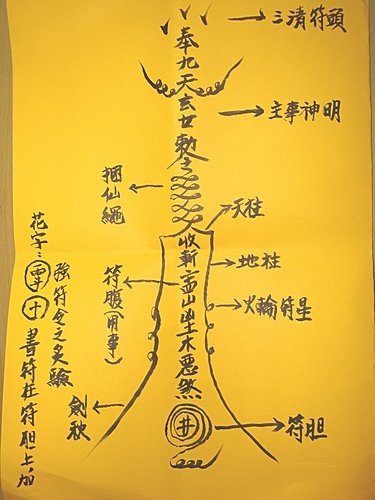 三清符頭
奉九天玄女勅令
主事神明
捆仙繩
天柱
收斬
山出土木惡煞
地柱
符腹(用事)
火輪符星
劍秋
井
符胆
花字:
十
書符在符胆上,加
強符令之灵驗